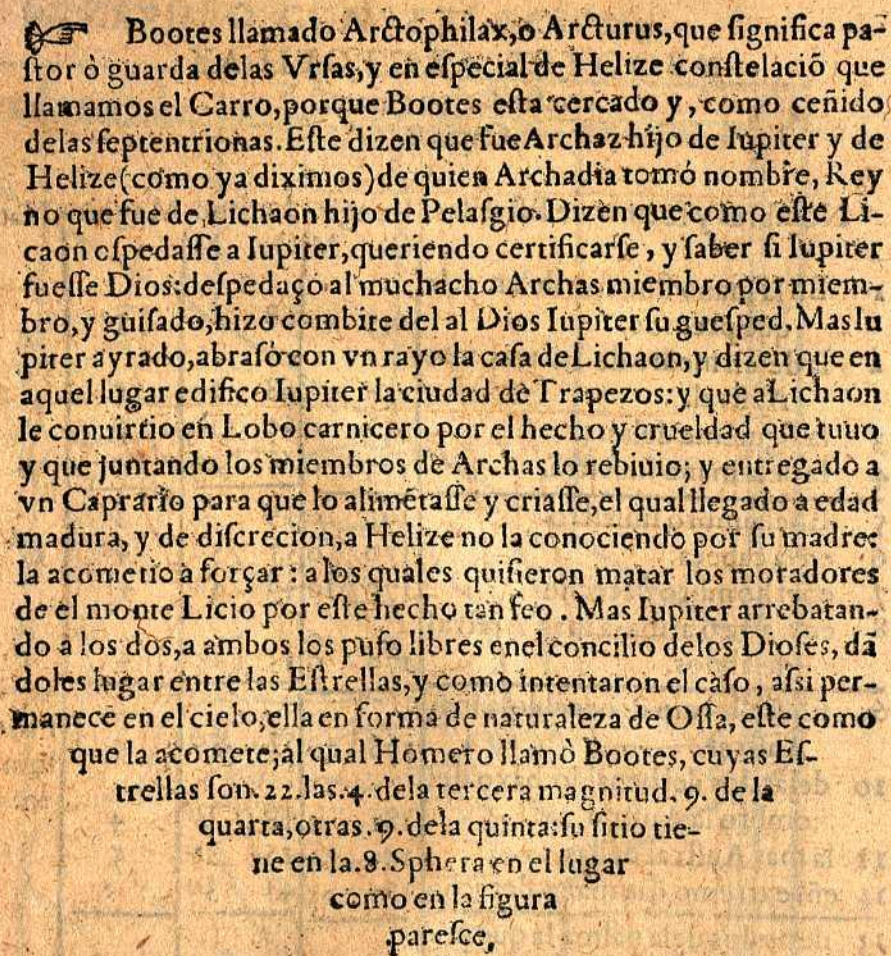 ☞ Bootes llamado Arctophilax,o Arcturus,que ſignifica pa-
ſtor ò guarda delas Vrſas,y en eſpecial de Helize conſtelaciõ que
llamamos el Carro,porque Bootes eſta cercado y, como ceñido
delas ſeptentrionas. Eſte dizen que fue Archaz hijo de Iupiter y de
Helize(como ya diximos)de quien Archadia tomó nombre, Rey
no que fue de Lichaon hijo de Pelaſgio. Dizen que como eſte Li-
caon oſpedaſſe a Iupiter,queriendo certificarſe, y ſaber ſi Iupiter
fueſſe Dios:deſpedaço al muchacho Archas miembro por miem-
bro,y guiſado,hizo combite del al Dios Iupiter ſu gueſped. Mas Iu
piter ayrado,abraſó con vn rayo la caſa de Lichaon,y dizen que en
aquel lugar edifico Iupiter la ciudad de Trapezos:y que a Lichaon
le conuirtio en Lobo carnicero por el hecho y crueldad que tuuo
y que juntando los miembros de Archas lo rebiuio; y entregado a
vn Caprario para que lo alimẽtaſſe y criaſſe,el qual llegado a edad
madura, y de diſcrecion,a Helize no la conociendo por ſu madre:
la acometio a forçar: a los quales quiſieron matar los moradores
de el monte Licio por eſte hecho tan feo. Mas Iupiter arrebatan-
do a los dos,a ambos los puſo libres enel concilio delos Dioſes, dã
doles lugar entre las Eſtrellas,y como intentaron el caſo, aſsi per-
manece en el cielo,ella en forma de naturaleza de Oſſa, eſte como
que la acomete;al qual Homero llamò Bootes, cuyas Eſ-
trellas ſon.22.las.4.dela tercera magnitud. 9. de la
quarta,otras.9.dela quinta:ſu ſitio tie-
ne en la.8.Sphera en el lugar
como en la figura
pareſce.